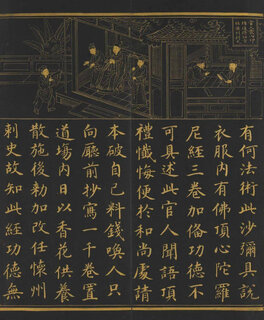 有何法術此沙彌具說
衣服內有佛頂心陀羅
尼經三卷加俻功德不
可具述此官人聞語頂
禮懺悔便於和尚處請
本破自己料錢喚人只
向廳前抄寫一千卷置
道塲內日以香花供養
散施後勑加改任懷州
刺史故知此經功德無